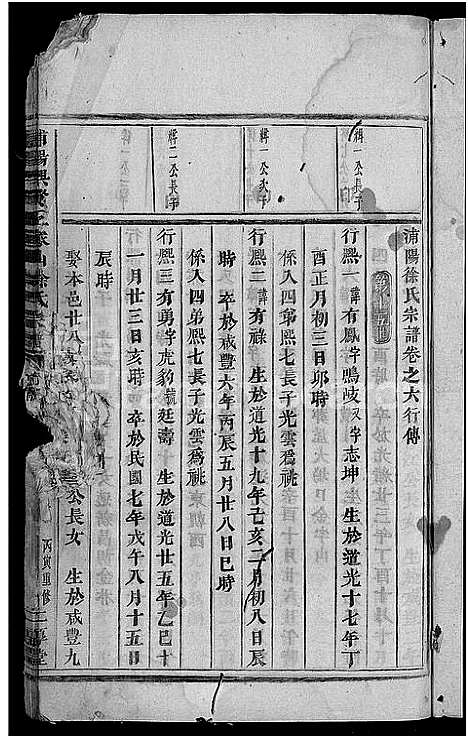 浦陽徐氏宗譜卷之六行傳
緝一公長子
行熈一諱有鳳字鳴岐又字志坤 生於道光十七年丁
酉正月初三日卯時
係入四弟熈七長子光雲爲祧
緝一公次子
行熈二諱有祿 生於道光十九年己亥二月初八日辰
時 卒於咸豐六年丙辰五月廿八日巳時
係入四弟熈七長子光雲爲祧
緝二公長子
行熈三有勇字虎豹號廷壽 生於道光廿五年乙巳十
一月廿三日亥時 卒於民國七年戊午八月十五日
辰時
娶本邑廿八 公長女 生於咸豐九
丙寅重修
堂